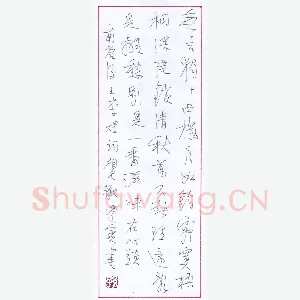 无言獨上西樓月如鈎寂寞梧
桐深院鎖清秋剪不斷理還亂
是離愁别是一番滋味在心頭
南唐後主李煜詞相見歡
Shufawang.CN